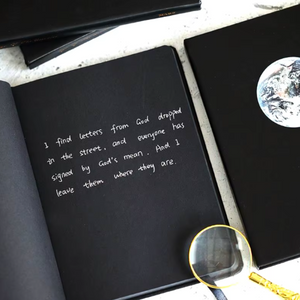 I find letters from God dropped
in the street, and everyone has
signed by God's mean, And I
leave them where they are.